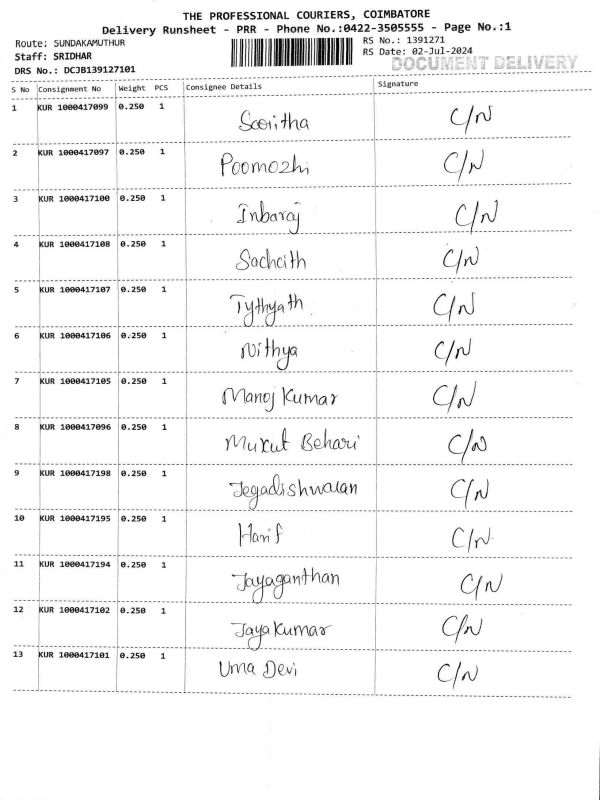 THE PROFESSIONAL COURIERS, COIMBATORE
Delivery Runsheet - PRR - Phone No.:0422-3505555 - Page No.:1
Route: SUNDAKAMUTHUR RS No.: 1391271
Staff: SRIDHAR RS Date: 02-Jul-2024
DOCUMENT DELIVERY
DRS No.: DCJB139127101
S No Consignment No Weight PCS Consignee Details Signature
1 KUR 1000417099 0.250 1 Saritha C/N
2 KUR 1000417097 0.250 1 Poomozhi C/N
3 KUR 1000417100 0.250 1 Inbaraj C/N
4 KUR 1000417108 0.250 1 C/N
5 KUR 1000417107 0.250 1 Tythyath C/N
6 KUR 1000417106 0.250 1 Nithya C/N
7 KUR 1000417105 0.250 1 Manoj Kumar C/N
8 KUR 1000417096 0.250 1 Mukut Behari C/N
9 KUR 1000417198 0.250 1 Jegadishwaran C/N
10 KUR 1000417195 0.250 1 Harif C/N
11 KUR 1000417194 0.250 1 Jayaganthan C/N
12 KUR 1000417102 0.250 1 Jaya Kumar C/N
13 KUR 1000417101 0.250 1 Uma Devi C/N